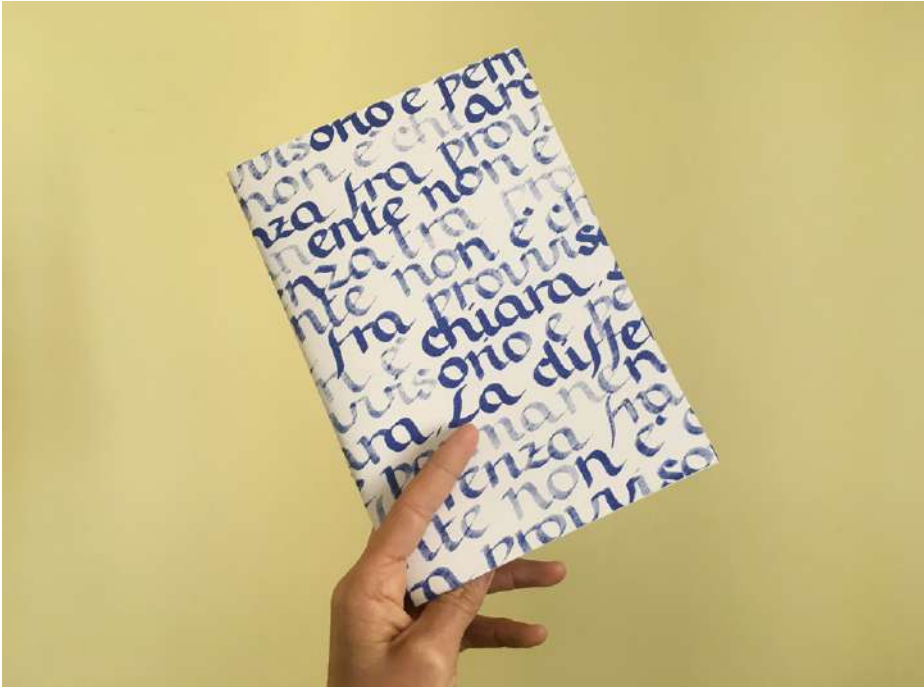 vvisorio e perm
non è chiara
nza fra provvi
nente non è
enza fra pro
nte non è ch
fra provviso
n è chiara.
vvisorio e pe
ara. La differ
permanen
renza fra
nte non è c
a provviso